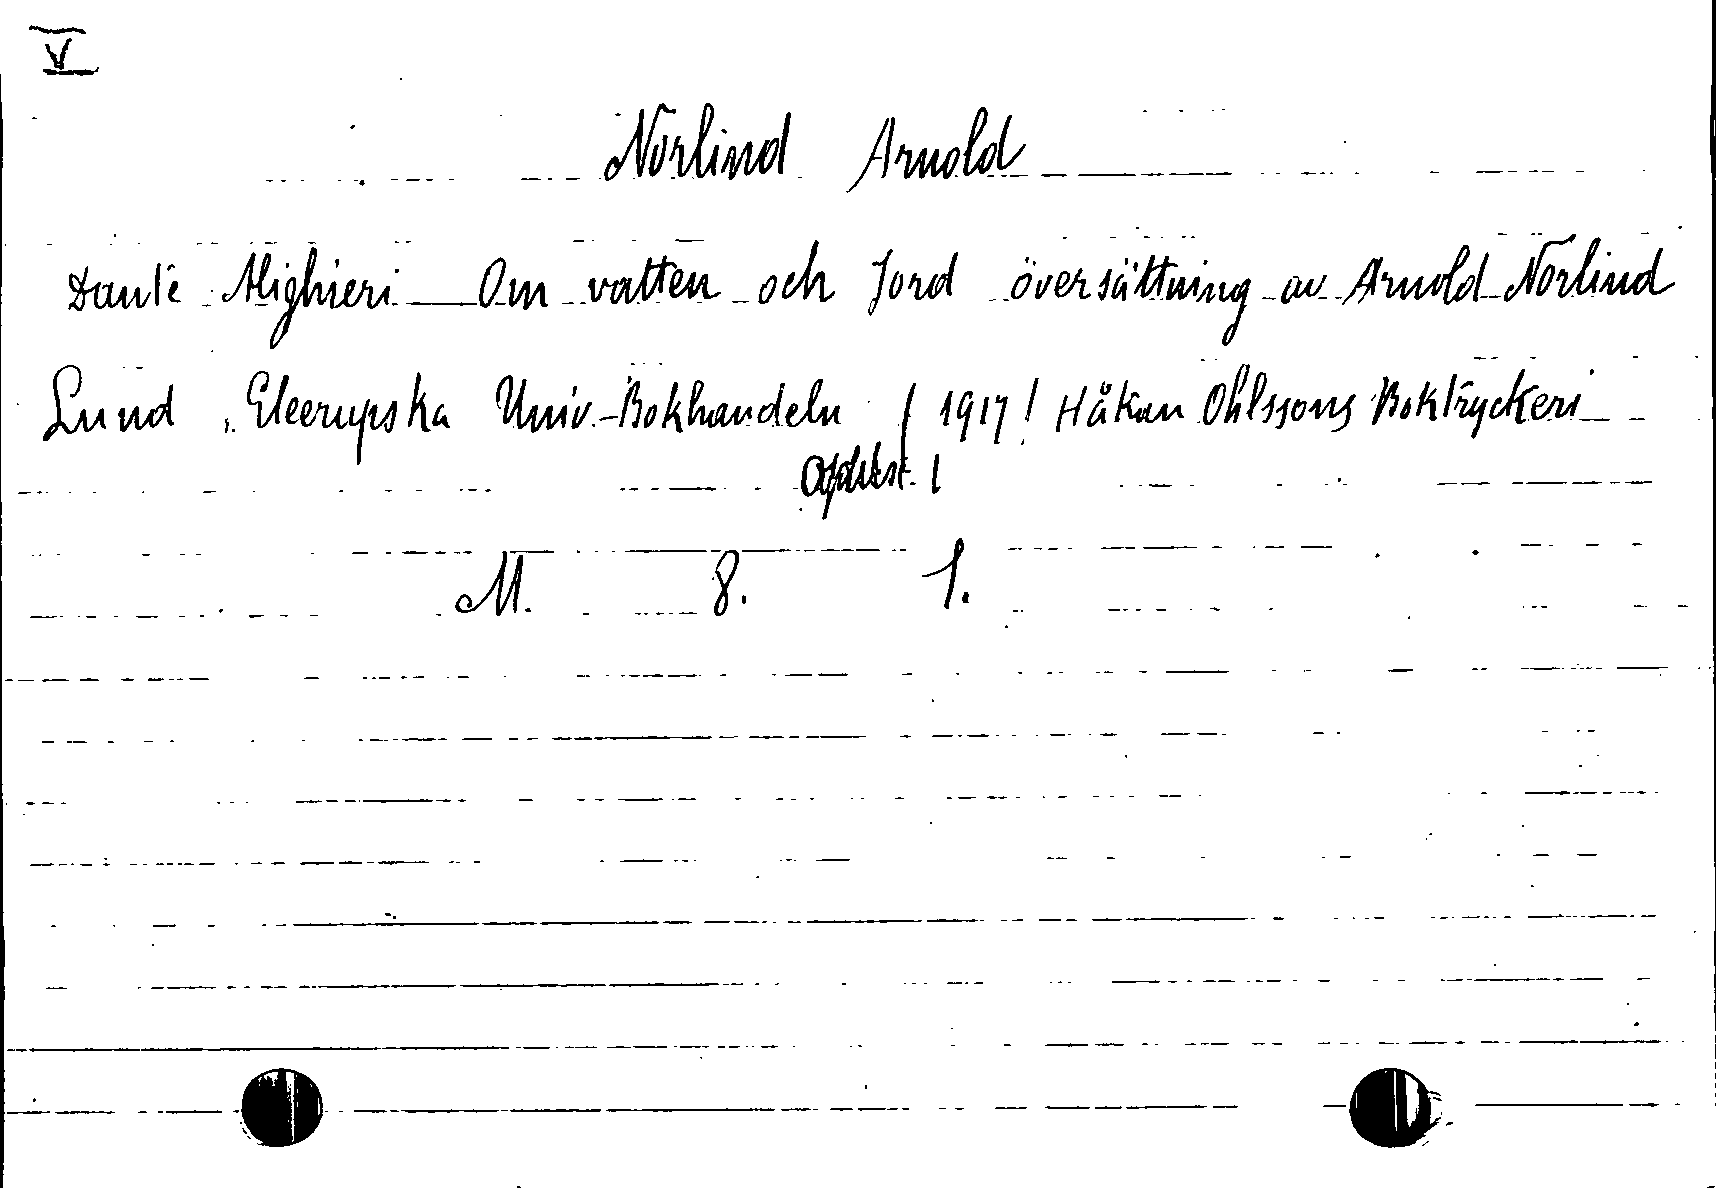 V
Norlind Arnold
Dante Alighieri Om vatten och Jord översättning av Arnold Norlind
Lund, Gleerupska Univ.-Bokhandeln / 1917 / Håkan Ohlssons Boktryckeri
M. 8. 1.